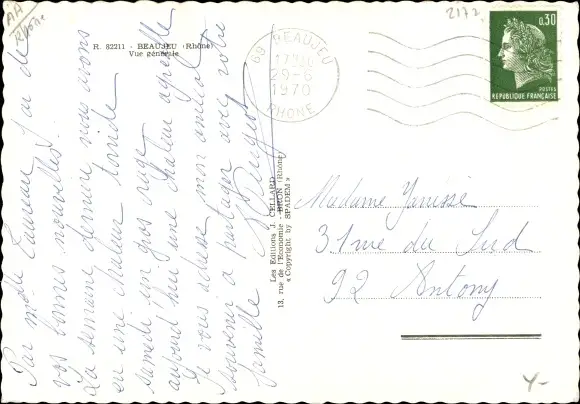 AA
Rhône
R. 82211 - BEAUJEU (Rhône)
Vue générale
Par melle Laureau j'ai de
vos bonnes nouvelles.
La semaine dernière nous avons
eu une chaleur torride
samedi un gros orage
aujourd'hui une chaleur agréable
Je vous adresse mon amical
souvenir à partager avec votre
famille
Les Editions J. CELLARD
13, rue de l'Economie - BRON (Rhône)
« Copyright by SPADEM »
69 BEAUJEU
17H
29-6
1970
RHONE
2172
0,30
POSTES
REPUBLIQUE FRANÇAISE
Madame Yanisse
31 rue du Sud
92 Antony
Y-